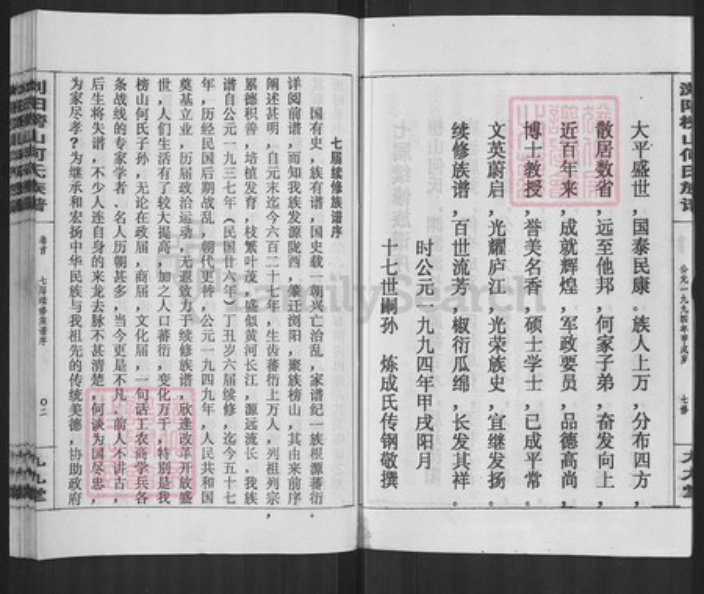 大平盛世，国泰民康。族人上万，分布四方，
散居数省，远至他邦，何家子弟，奋发向上，
近百年来，成就辉煌，军政要员，品德高尚，
博士教授，誉美名香，硕士学士，已成平常。
文英蔚启，光耀庐江，光荣族史，宜继发扬。
续修族谱，百世流芳，椒衍瓜绵，长发其祥。
时公元一九九四年甲戌阳月
十七世嗣孙　炼成氏传钢敬撰
浏阳榜山何氏族谱
公元一九九四年甲戌岁
七修
七届续修族谱序
国有史，族有谱，国史载一朝兴亡治乱，家谱纪一族根源蕃衍。
详阅前谱，而知我族发源陇西，肇迁浏阳，聚族榜山，其由来前序
阐述甚明，自元末迄今六百二十七年，生齿蕃衍上万人，列祖列宗，
累德积善，培植发育，枝繁叶茂，盛似黄河长江，源远流长，我族
谱自公元一九三七年（民国廿六年）丁丑岁六届续修，迄今五十七
年，历经民国后期战乱，朝代更替，公元一九四九年，人民共和国
奠基立业，历届政治运动，无遐致力于续修族谱，欣逢改革开放盛
世，人们生活有了较大提高，加之人口蕃衍，变化万千，特别是我
榜山何氏子孙，无论在政届，商届，文化届，一句话工农商学兵各
条战线的专家学者、名人历朝甚多，当今更是不凡，前人不讲古，
后生将失谱，不少人连自身的来龙去脉不甚清楚，何谈为国尽忠，
为家尽孝？为继承和宏扬中华民族与我祖先的传统美德，协助政府
浏阳榜山何氏族谱
卷首
七届续修族谱序
〇二
九九堂
FamilySearch